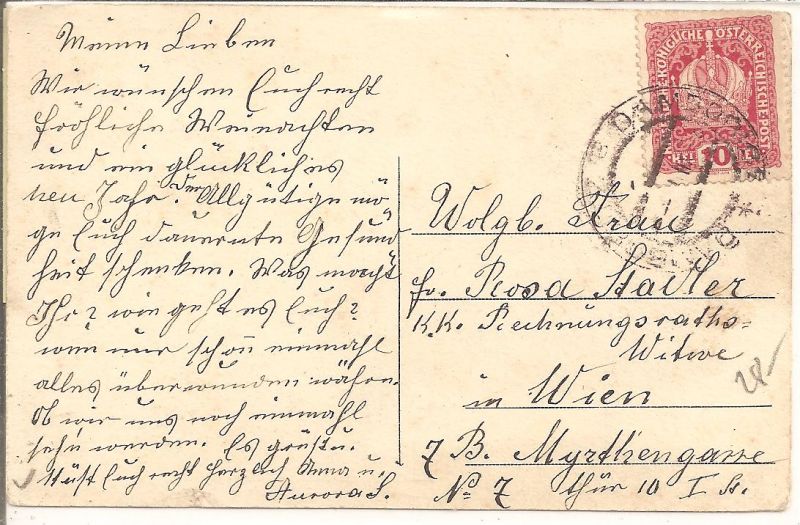 Meine Lieben
Wir wünschen Euch recht
fröhliche Weinachten
und ein glückliches
neu Jahr. Der Allgütige mö
ge Euch dauernte Gesund
heit schenken. Was macht
Ihr? wie geht es Euch?
wen nur schon einmahl
alles überwunden währe.
Ob wir uns noch einmahl
sehn werden. Es grüst u.
küst Euch recht herzlich Anna u.
Aurora S.
KAISERLICHE KÖNIGLICHE ÖSTERREICHISCHE POST
HELLER 10 HELLER
Wolgb. Frau
fr. Rosa Stadler
K.K. Rechnungsraths-
Witwe
in Wien
7 B. Myrthengasse
No 7 thür 10 I St.
28